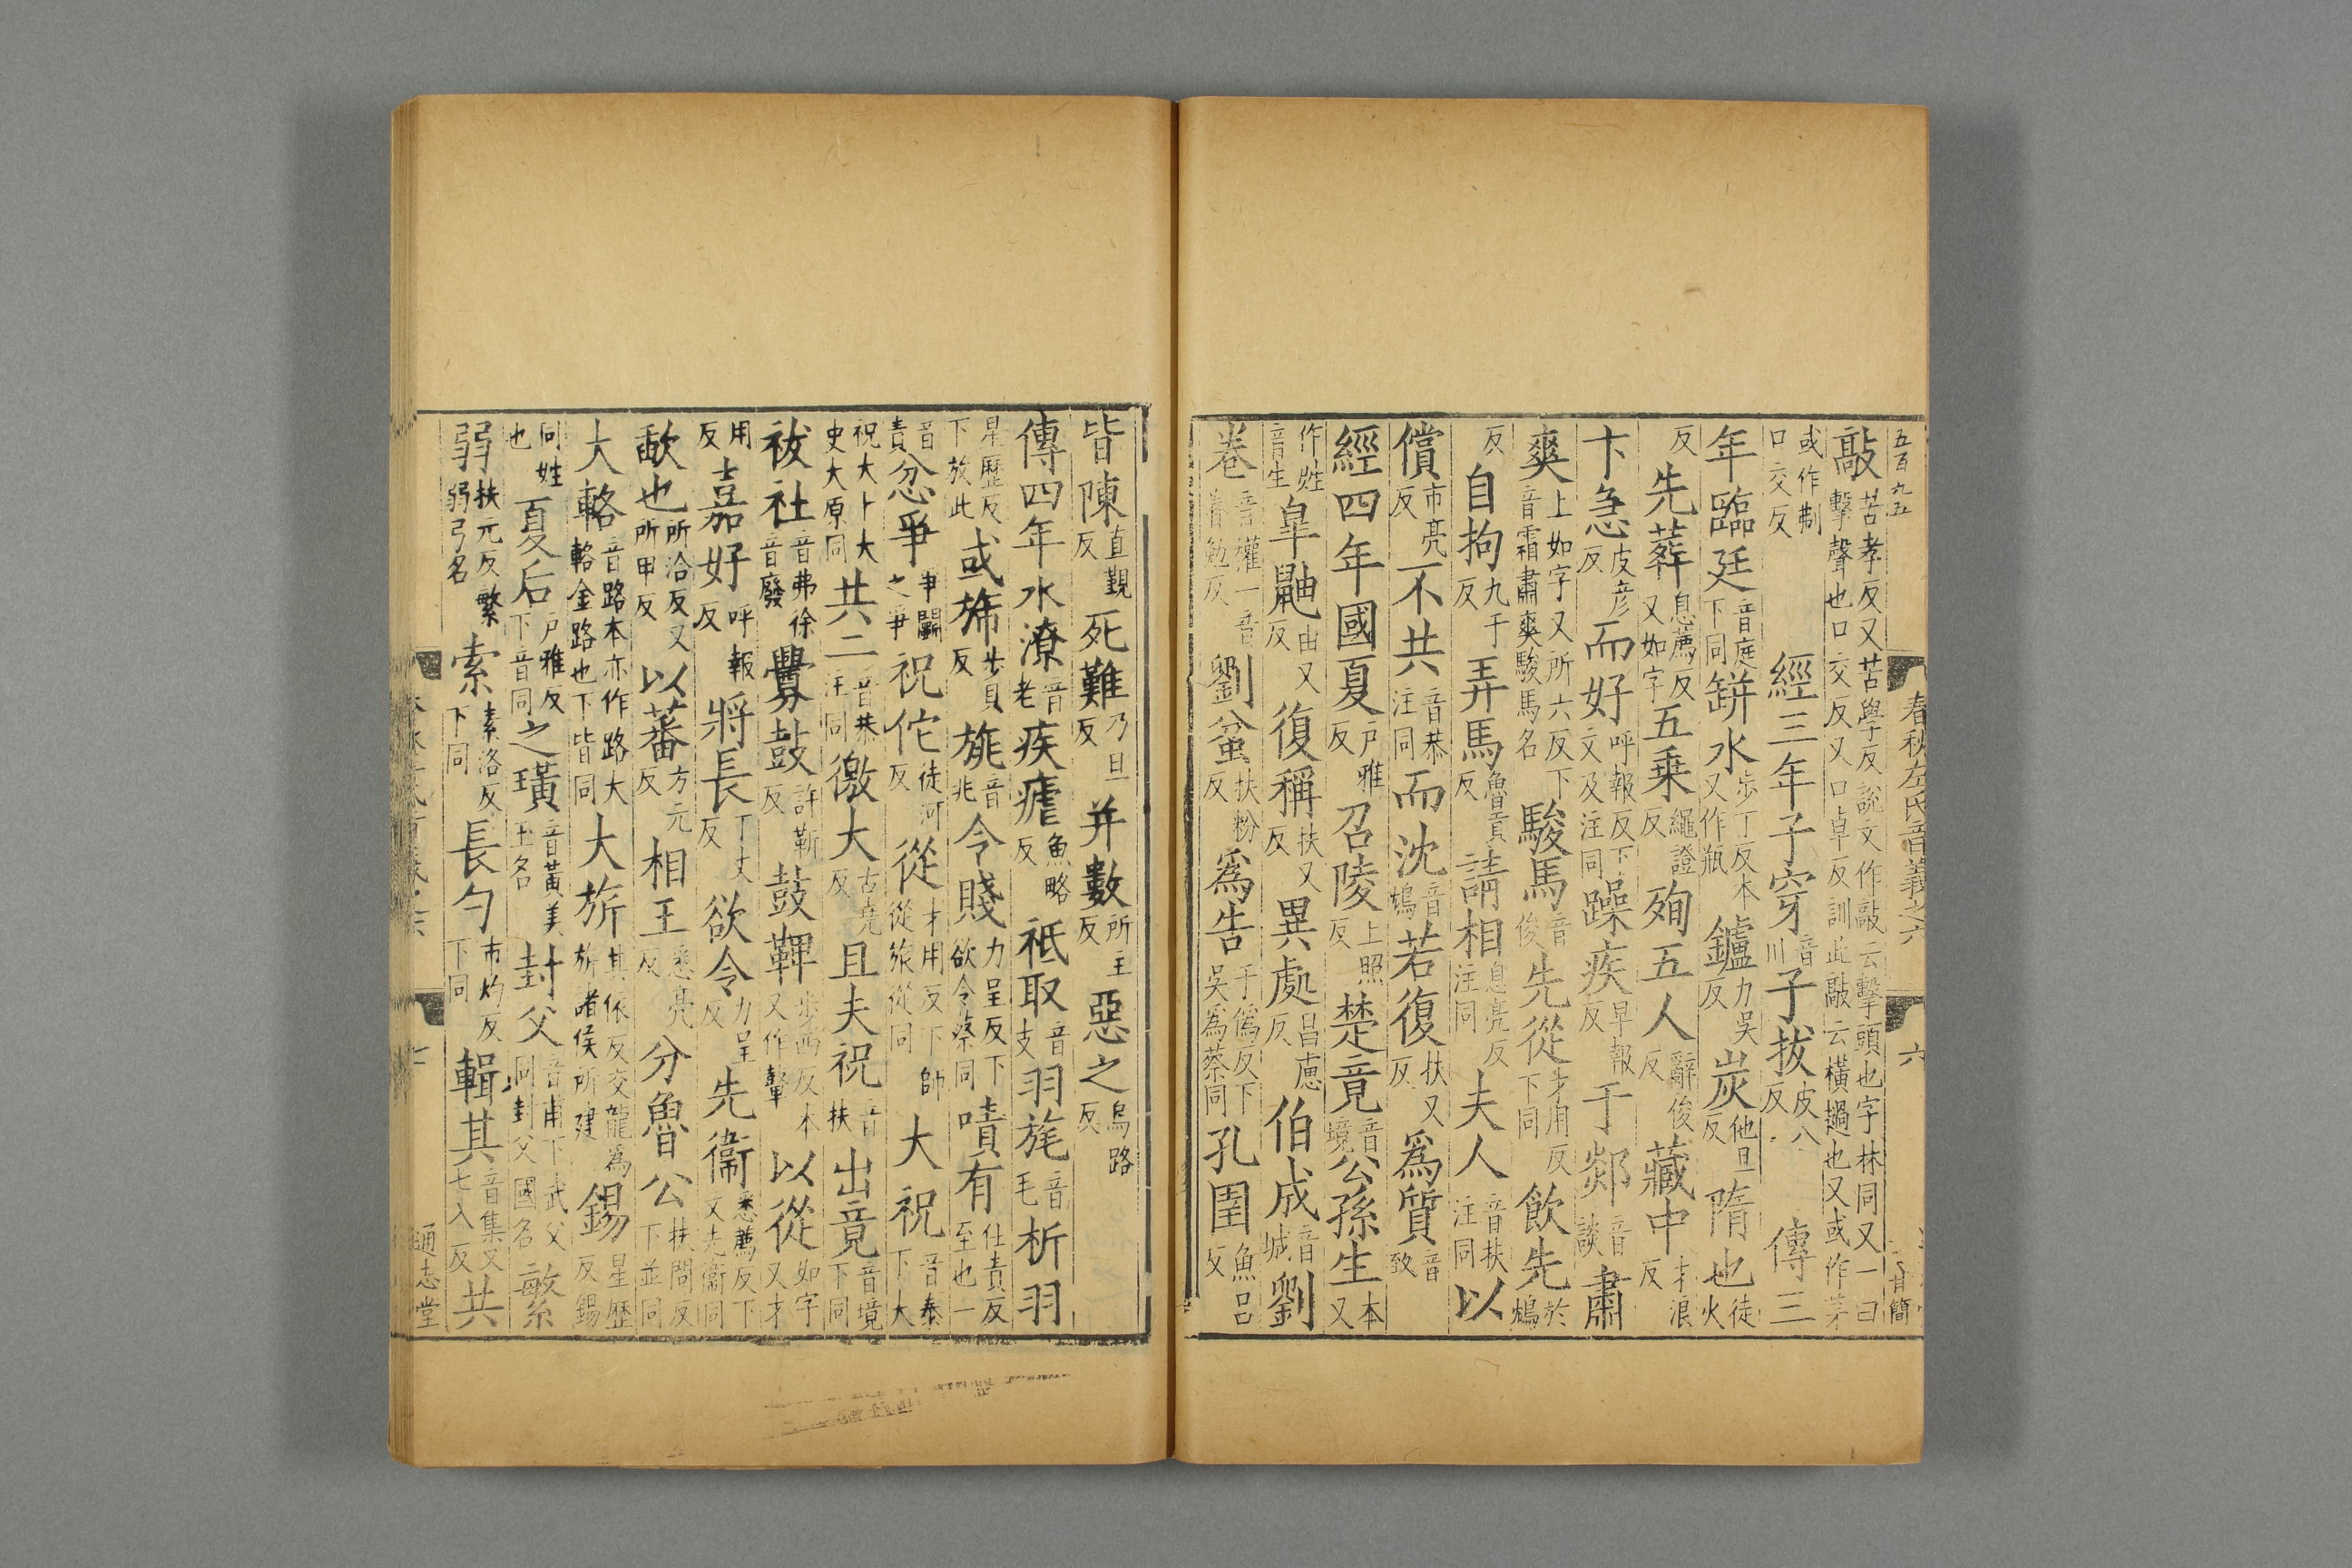 五百九五
春秋左氏音義之六
六
甘簡
敲苦孝反又苦學反說文作敲云擊頭也字林同又一曰擊聲也口交反又口卓反訓此敲云橫撾也又或作茅
或作㓡口交反 經三年子穿音川子拔皮八反 傳三
年臨廷音庭下同缾水步丁反本又作瓶鑪力吳反炭他旦反隋也徒火
反先葬息薦反又如字五乗繩證反殉五人辭俊反藏中才浪反
卞急皮彥反而好呼報反下文及注同躁疾早報反于郯音談肅
爽上如字又所六反下音霜肅爽駿馬名駿馬音俊先從才用反下同飲先於鴆
反自拘九于反弄馬魯貢反請相息亮反注同夫人音扶注同以
償市亮反不共音恭注同而沈音鴆若復扶又反爲質音致
經四年國夏戶雅反召陵上照反楚竟音境公孫生本又
作姓音生皐鼬由又反復稱扶又反異處昌慮反伯成音城劉
卷音權一音眷勉反劉蚠扶粉反爲告于僞反下吳爲蔡同孔圉魚呂反
皆陳直覲反死難乃旦反并數所主反惡之烏路反
傳四年水潦音老疾瘧魚略反祗取音支羽旄音毛析羽
星歷反下放此或旆步貝反旐音兆令賤力呈反下欲令蔡同嘖有仕責反至也一
音責忿爭爭鬭之爭祝佗徒河反從才用反下帥從旅從同大祝音泰下大
祝大卜大史大原同共二音恭注同徼大古堯反且夫祝音扶出竟音境下同
祓社音弗徐音廢釁鼓許靳反鼓鞞步西反本又作鼙以從如字又才
用反嘉好呼報反將長丁丈反欲令力呈反先衞悉薦反下文先衞同
歃也所洽反又所甲反以蕃方元反相王悉亮反分魯公扶問反下並同
大輅音路本亦作路大輅金路也下皆同大旂其依反交龍爲旂諸侯所建錫星歷反錫
同姓也夏后戶雅反下音同之璜音黃美玉名封父音甫下武父同封父國名繁
弱扶元反繁弱弓名索素洛反下同長勺市灼反下同輯其音集又七入反共
七
通志堂